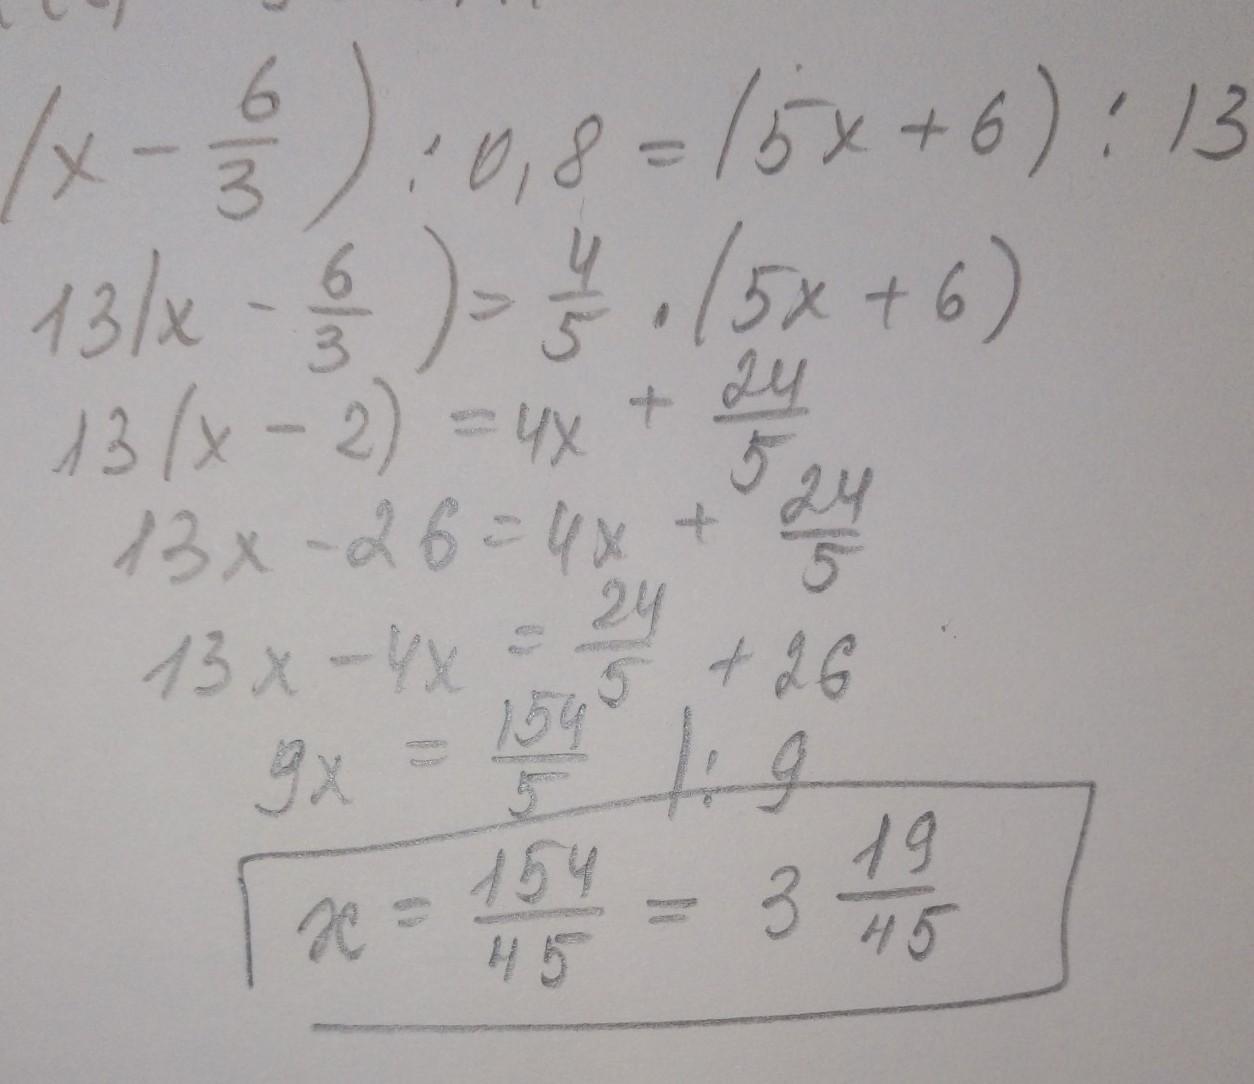 (x - 6/3) : 0,8 = (5x + 6) : 13
13(x - 6/3) = 4/5 · (5x + 6)
13(x - 2) = 4x + 24/5
13x - 26 = 4x + 24/5
13x - 4x = 24/5 + 26
9x = 154/5 |: 9
x = 154/45 = 3 19/45